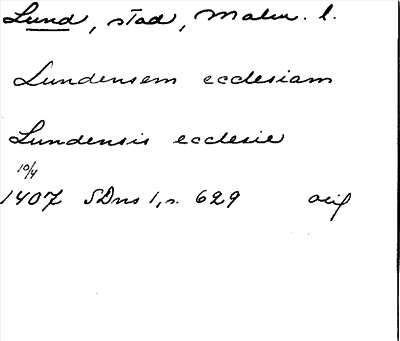 Lund, stad, Malm. l.
Lundensem ecclesiam
Lundensis ecclesie
10/4
1407 SDns 1, s. 629 orig